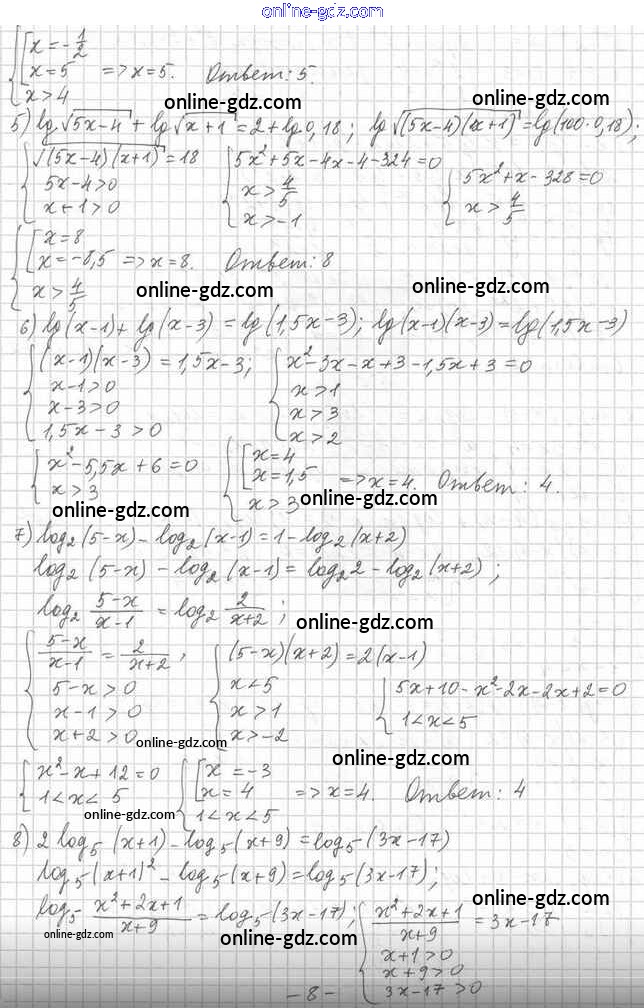 online-gdz.com
{[x = -1/2
x = 5 => x = 5. Ответ: 5.
x > 4
online-gdz.com online-gdz.com
5) lg √(5x-4) + lg √(x+1) = 2 + lg 0,18; lg √((5x-4)(x+1)) = lg(100·0,18);
{√((5x-4)(x+1)) = 18 {5x² + 5x - 4x - 4 - 324 = 0 {5x² + x - 328 = 0
5x - 4 > 0 x > 4/5 x > 4/5
x + 1 > 0 x > -1
{[x = 8
x = -8,5 => x = 8. Ответ: 8
x > 4/5
online-gdz.com online-gdz.com
6) lg(x-1) + lg(x-3) = lg(1,5x-3); lg(x-1)(x-3) = lg(1,5x-3)
{(x-1)(x-3) = 1,5x-3; {x² - 3x - x + 3 - 1,5x + 3 = 0
x - 1 > 0 x > 1
x - 3 > 0 x > 3
1,5x - 3 > 0 x > 2
{x² - 5,5x + 6 = 0 {[x = 4
x > 3 x = 1,5 => x = 4. Ответ: 4.
x > 3
online-gdz.com online-gdz.com
7) log₂(5-x) - log₂(x-1) = 1 - log₂(x+2)
log₂(5-x) - log₂(x-1) = log₂2 - log₂(x+2);
log₂ (5-x)/(x-1) = log₂ 2/(x+2);
online-gdz.com
{(5-x)/(x-1) = 2/(x+2), {(5-x)(x+2) = 2(x-1)
5 - x > 0 x < 5 {5x + 10 - x² - 2x - 2x + 2 = 0
x - 1 > 0 x > 1 1 < x < 5
x + 2 > 0 x > -2
online-gdz.com online-gdz.com
{x² - x + 12 = 0 {[x = -3
1 < x < 5 x = 4 => x = 4. Ответ: 4
1 < x < 5
online-gdz.com online-gdz.com
8) 2 log₅(x+1) - log₅(x+9) = log₅(3x-17)
log₅(x+1)² - log₅(x+9) = log₅(3x-17);
log₅ (x²+2x+1)/(x+9) = log₅(3x-17); {(x²+2x+1)/(x+9) = 3x-17
x + 1 > 0
x + 9 > 0
3x - 17 > 0
online-gdz.com online-gdz.com online-gdz.com
- 8 -